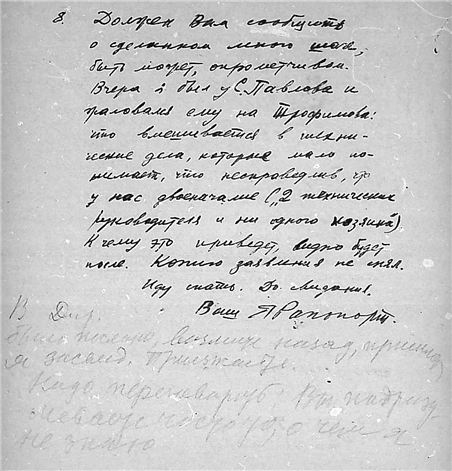 8. Должен Вам сообщить
о сделанном мною шаге,
быть может, опрометчивом.
Вчера я был у С. Павлова и
жаловался ему на Трофимова:
что вмешивается в техни-
ческие дела, которые мало по-
нимает, что несправедлив, что
у нас двоеначалие („2 технических
руководителя и ни одного хозяина“).
К чему это приведет, видно будет
после. Копию заявления не снял.
Иду спать. До свидания.
Ваш Я Рапопорт.
В
было письмо, назад,
я Приезжайте.
Надо переговорить. Вы
о чем я
не знаю